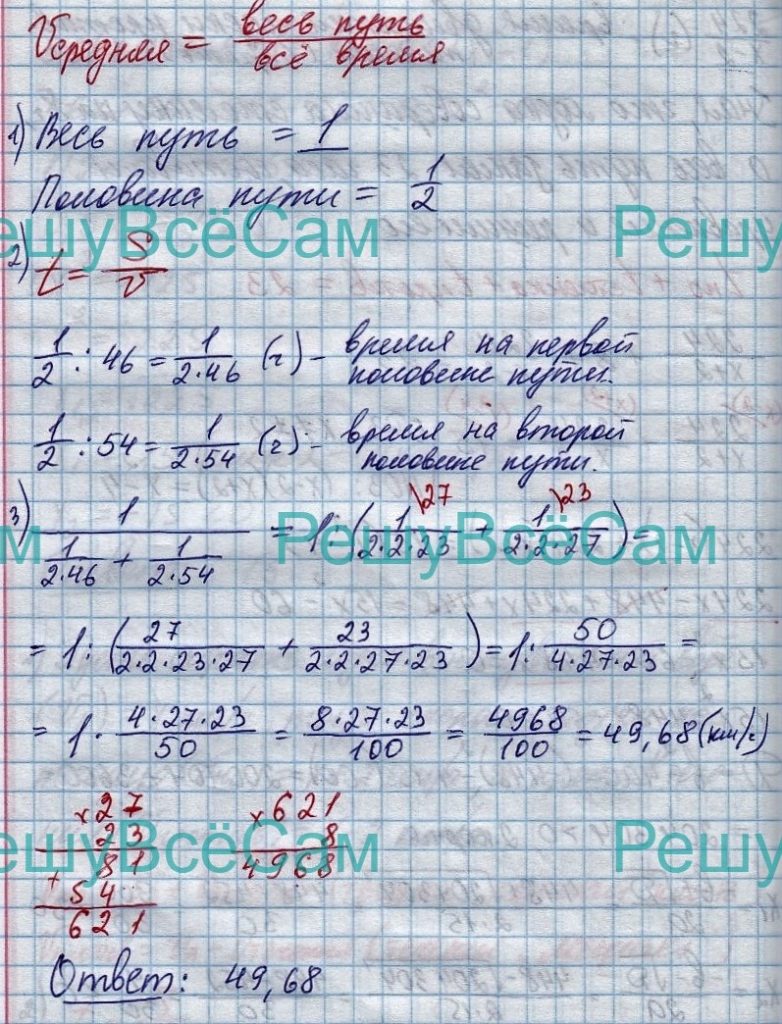 Vсредняя = весь путь / всё время
1) Весь путь = 1
Половина пути = 1/2
ешуВсёСам Решу
2) t = S/v
1/2 : 46 = 1/(2·46) (ч) – время на первой
половине пути.
1/2 : 54 = 1/(2·54) (ч) – время на второй
половине пути.
3) 1/(1/(2·46) + 1/(2·54)) = 1 : (1\27/(2·2·23) + 1\23/(2·2·27)) =
м РешуВсёСам
= 1 : (27/(2·2·23·27) + 23/(2·2·27·23)) = 1 : 50/(4·27·23) =
= 1 · (4·27·23)/50 = (8·27·23)/100 = 4968/100 = 49,68 (км/ч)
×27 ×621
23 8
ешуВсёСам Решу
81 4968
+
54
621
Ответ: 49,68